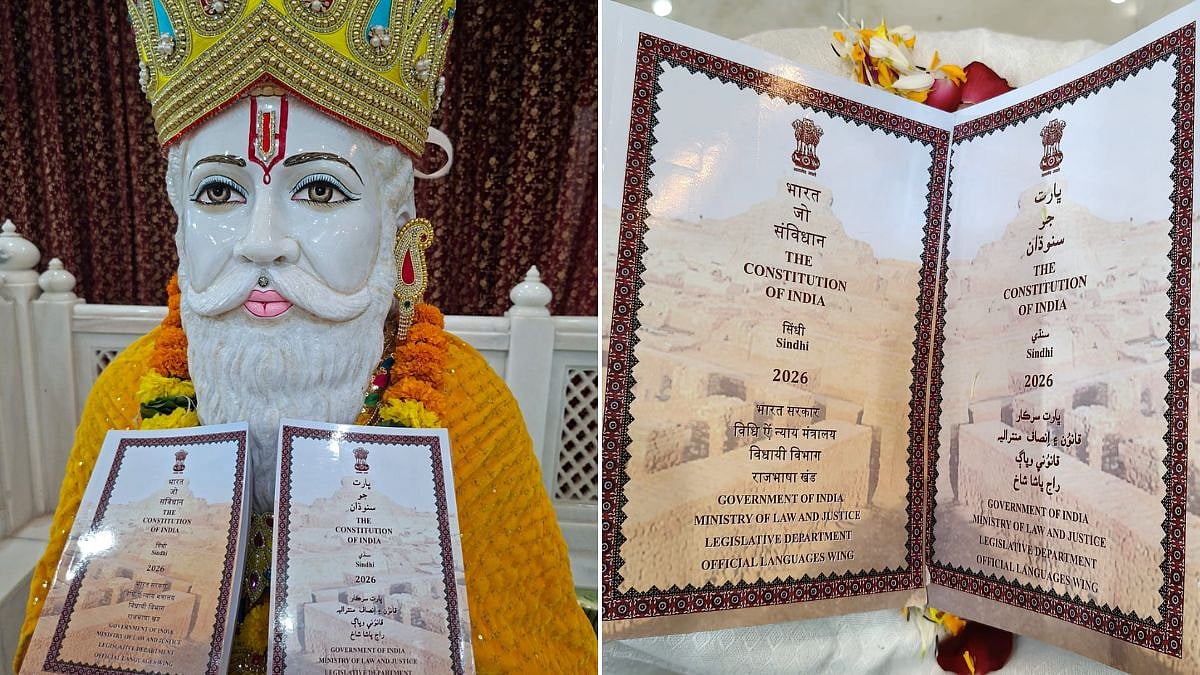 भारत
जो
संविधान
THE
CONSTITUTION
OF INDIA
सिंधी
Sindhi
2026
भारत सरकार
विधि ऐं न्याय मंत्रालय
विधायी विभाग
राजभाषा खंड
GOVERNMENT OF INDIA
MINISTRY OF LAW AND JUSTICE
LEGISLATIVE DEPARTMENT
OFFICIAL LANGUAGES WING
ڀارت
جو
سنوڌان
THE
CONSTITUTION
OF INDIA
سنڌي
Sindhi
2026
ڀارت سرڪار
قانوُن ۽ اِنصاف منتراليہ
قانوُني وڀاڳ
راڄ ڀاشا شاخ
GOVERNMENT OF INDIA
MINISTRY OF LAW AND JUSTICE
LEGISLATIVE DEPARTMENT
भारत
जो
संविधान
THE
CONSTITUTION
OF INDIA
सिंधी
Sindhi
2026
भारत सरकार
विधि ऐं न्याय मंत्रालय
विधायी विभाग
राजभाषा खंड
GOVERNMENT OF INDIA
MINISTRY OF LAW AND JUSTICE
LEGISLATIVE DEPARTMENT
OFFICIAL LANGUAGES WING
ڀارت
جو
سنوڌان
THE
CONSTITUTION
OF INDIA
سنڌي
Sindhi
2026
ڀارت سرڪار
قانوُن ۽ اِنصاف منتراليہ
قانوُني وڀاڳ
راڄ ڀاشا شاخ
GOVERNMENT OF INDIA
MINISTRY OF LAW AND JUSTICE
LEGISLATIVE DEPARTMENT
OFFICIAL LANGUAGES WING